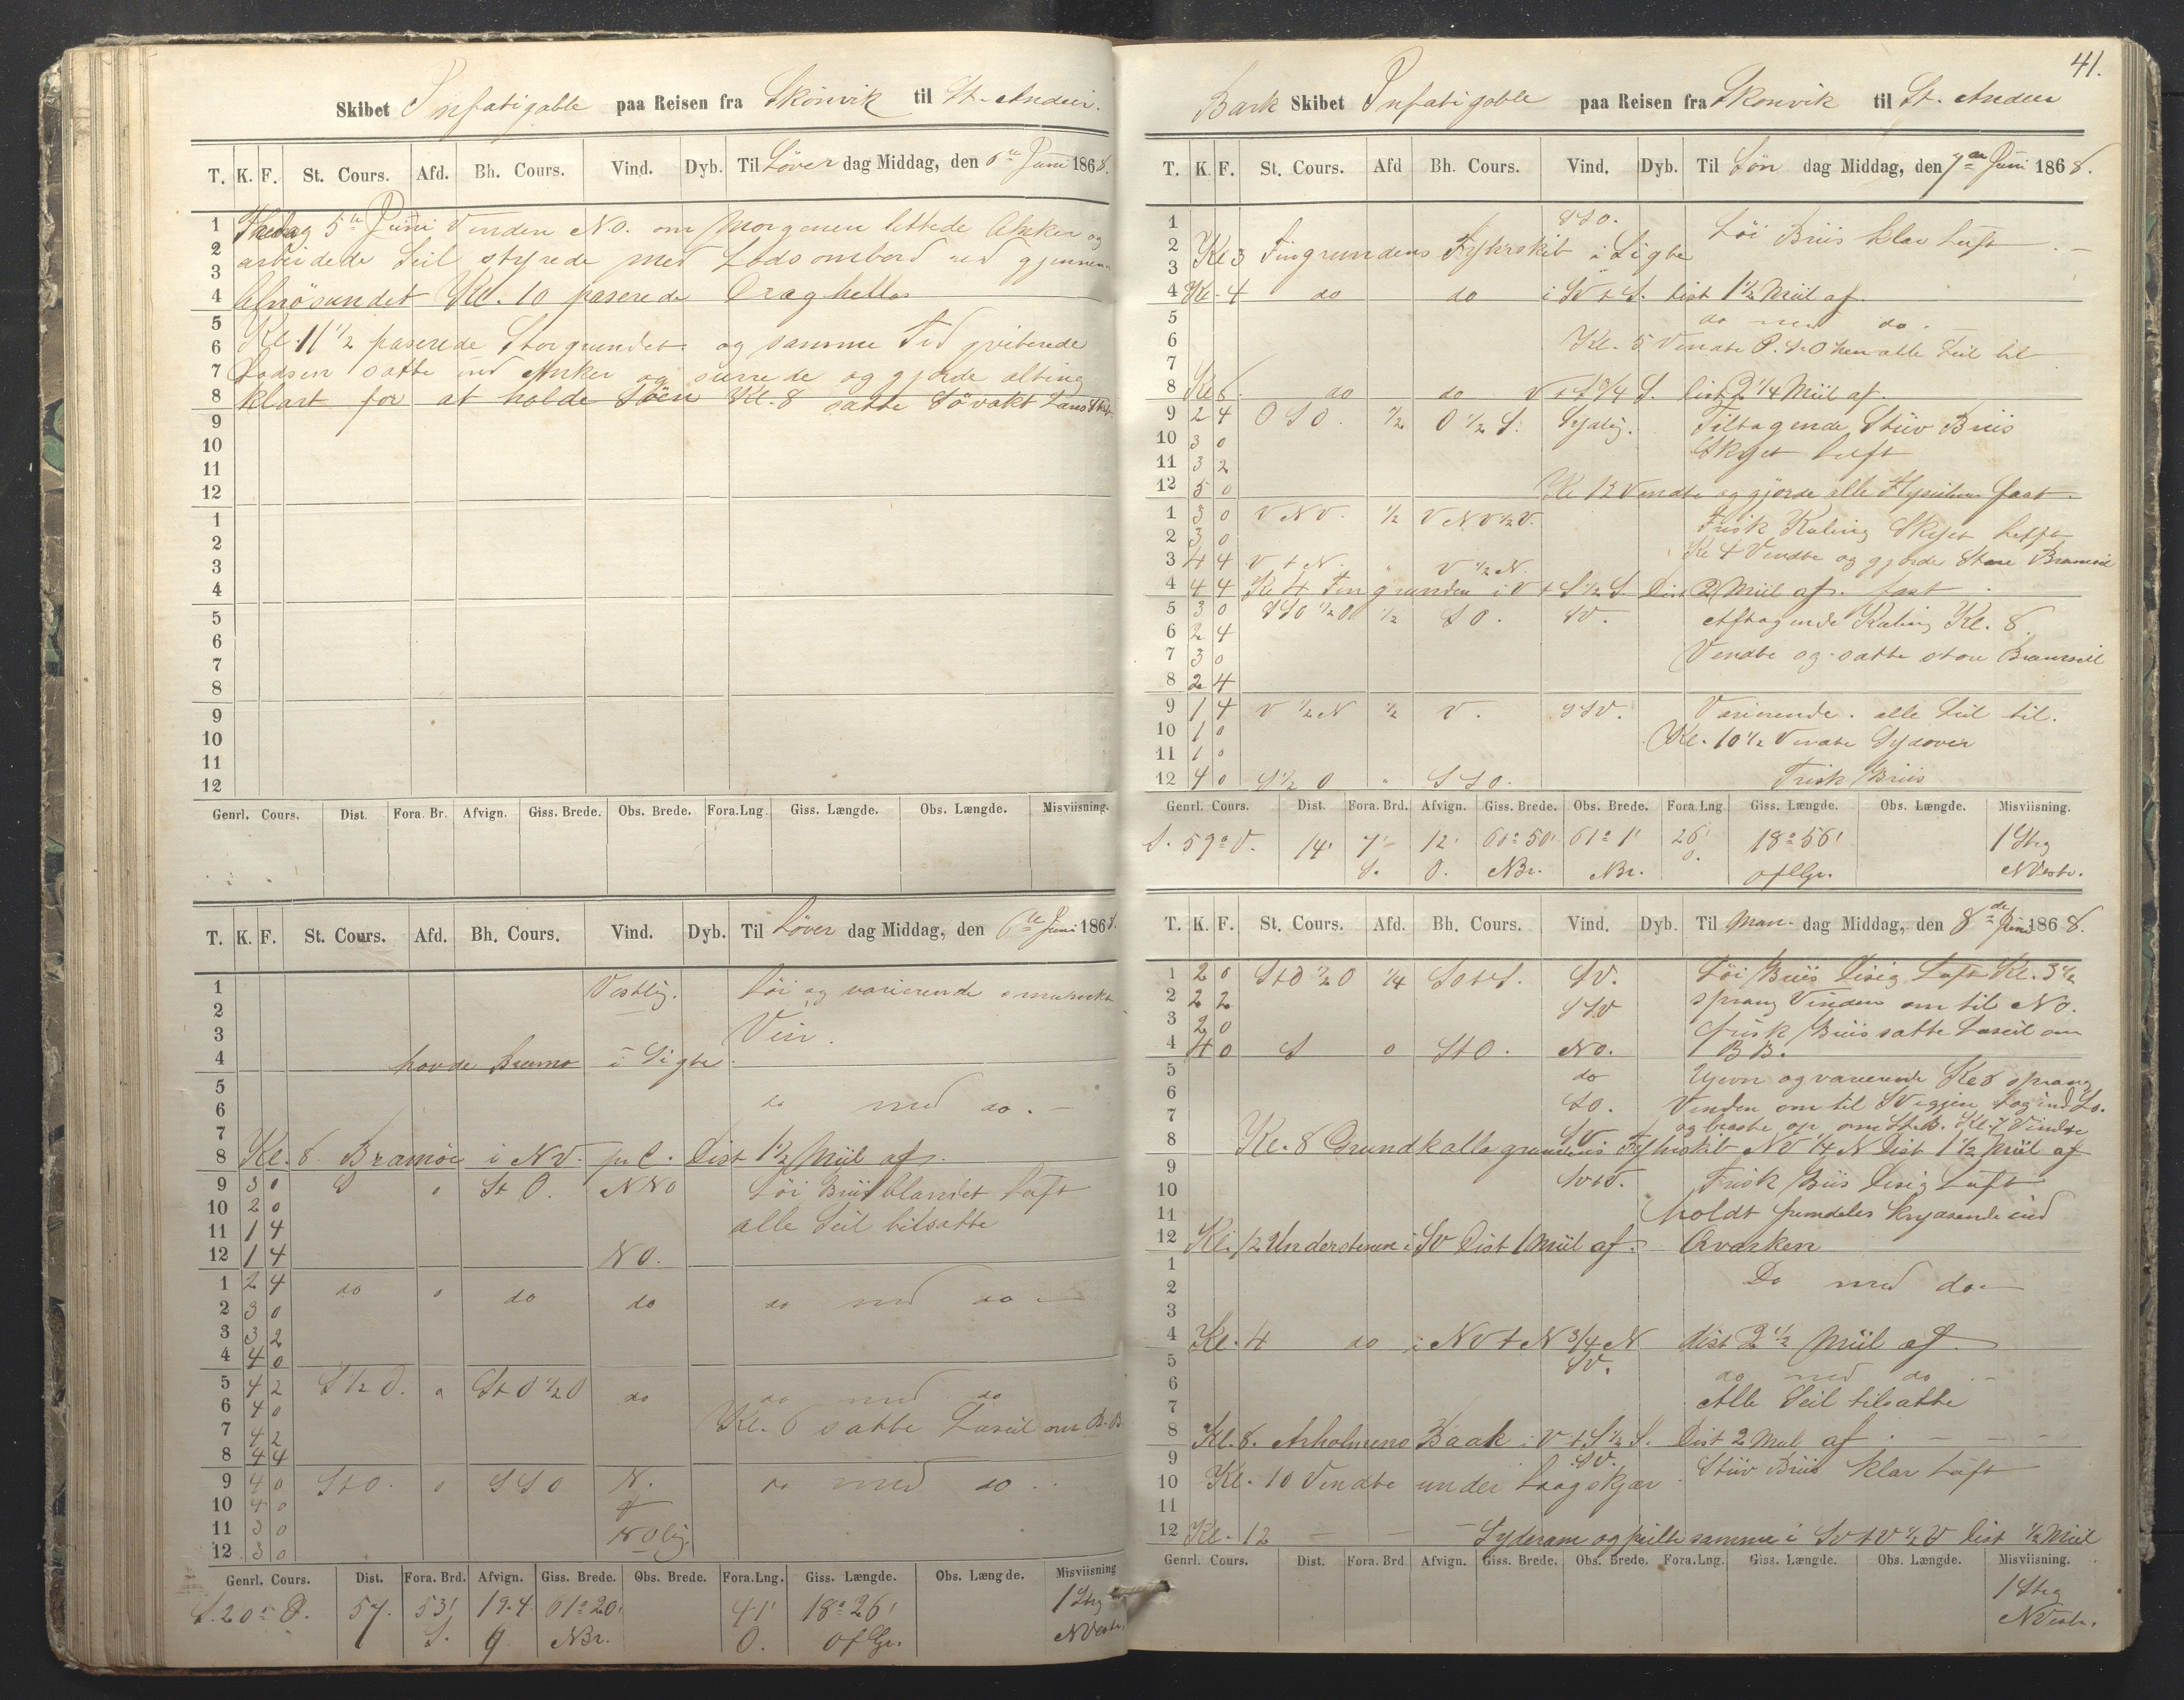 Skibet Infatigable paa Reisen fra Skönvik til St. Ander.
T. K. F. St. Cours. Afd. Bh. Cours. Vind. Dyb. Til Löver dag Middag, den 6te Juni 1868.
1 Fredag 5te Juni Vinden N.O. om Morgenen lettede Anker og
2 arbeidede Seil styrede med Lods ombord ud gjennem
3
4 Alnösundet Kl. 10 paserede Draghellan
5
6 Kl. 11 1/2 paserede Storgrundet og samme Tid qviterede
7 Lodsen satte ind Anker og surrede og gjorde alting
8 klart for at holde Söen Kl. 8 satte Sövakt
9
10
11
12
1
2
3
4
5
6
7
8
9
10
11
12
Genrl. Cours. Dist. Fora. Br. Afvign. Giss. Brede. Obs. Brede. Fora.Lng. Giss. Længde. Obs. Længde. Misviisning.
T. K. F. St. Cours. Afd. Bh. Cours. Vind. Dyb. Til Löver dag Middag, den 6te Juni 1868.
1 Vestlig. Löi og varierende smuukt
2 Veir.
3
4 havde Bremö i Sigte
5
6 do med do.
7
8 Kl. 8 Bramöe i NV. pr C. Dist 1 1/2 Miil af.
9 3 0 S 0 St O. NNO Löi Briis blandet Luft
10 2 0
11 1 4 alle Seil tilsatte
12 1 4 NO.
1 2 4 do 0 do do do med do
2 3 0
3 3 2
4 4 0
5 4 2 S 1/2 O. 0 St O 1/2 O do do med do
6 4 0 Kl. 6 satte Læseil om B.B.
7 4 2
8 4 4
9 4 0 StO. 0 SSO N. do med do
10 4 0 &
11 3 0 NOlig.
12 3 0
Genrl. Cours. Dist. Fora. Brd. Afvign. Giss. Brede. Obs. Brede. Fora.Lng. Giss. Længde. Obs. Længde. Misviisning
S. 20° O. 57. 53' 19.4 61° 20' 41' 18° 26' 1 Streg
S. NBr. O. of Gr. NVestr.
41.
Bark Skibet Infatigable paa Reisen fra Skonvik til St. Ander
T. K. F. St. Cours. Afd Bh. Cours. Vind. Dyb. Til Søn dag Middag, den 7de Juni 1868.
1 SSO. Löi Briis klar Luft
2 Kl 3 Fingrundens Fyhrskib i Sigte
3
4 Kl. 4 do do i SV t S. Dist 1 1/2 Miil af.
5 do med do.
6 Kl. 5 Vendte alle Seil til
7
8 Kl 8. do do V t S 3/4 S. Dist 2 1/4 Miil af.
9 2 4 OSO. 1/2 O 1/2 S. Sydlig. Tiltagende Stiiv Briis
10 3 0 Skyet Luft
11 3 2
12 5 0 Kl 12 Vendte og gjorde alle Flyseilene fast.
1 3 0 VNV. 1/2 VNV 1/2 V. Frisk Kuling Skyet Luft
2 3 0 Kl 4 Vendte og gjorde Store Bramseil
3 4 4 V t N. " V 1/2 N.
4 4 4 Kl 4 Fingrunden i V t S 1/2 S. Dist 2 Miil af. fast
5 3 0 SSO 1/2 O 1/2 SO. SV. Aftagende Kuling Kl. 8
6 2 4
7 3 0 Vendte og satte store Bramseil
8 2 4
9 1 4 V 1/2 N 1/2 V. SSV. Varierende. alle Seil til.
10 1 0 Kl. 10 1/2 Vendte Sydover
11 1 0
12 4 0 S 1/2 O " SSO. Frisk Briis
Genrl. Cours. Dist. Fora. Brd. Afvign. Giss. Brede. Obs. Brede. Fora.Lng. Giss. Længde. Obs. Længde. Misviisning
S. 59° O. 14' 7' 12' 60° 50' 61° 1' 26' 18° 56' 1 Streg
S. O. NBr. NBr. O. of Gr. NVestr.
T. K. F. St. Cours. Afd. Bh. Cours. Vind. Dyb. Til Man- dag Middag, den 8de Juni 1868.
1 2 0 StO 1/2 O 1/4 SOtS. SV. Löi Briis Disig Luft Kl. 3 1/2
2 2 2 SSV sprang Vinden om til NO.
3 2 0 frisk Briis satte Læseil om
4 4 0 S 0 StO. NO. BB.
5 do Ujevn og varierende Kl 6 sprang
6 SO. Vinden om til SV igjen tog ind
7 SV og braste op om St.B. Kl. 7 Vendte
8 Kl. 8 Grundkallegrundens Fyhrskib NV 1/4 N Dist 1 1/2 Miil af
9 SVtV. Frisk Briis Disig Luft
10
11 holdt fremdeles krydsende ind
12 Kl. 12 Understenen i SV Dist 1 Miil af. Qvarken
1 Do med do
2
3
4 Kl. 4 do i NV t N 3/4 N dist 2 1/2 Miil af.
5 SV. do med do
6
7 Alle Seil tilsatte
8 Kl. 8. Arholmens Baak i V t S 1/2 S. Dist 2 Miil af
9 SV. Stiiv Briis klar Luft
10 Kl. 10 Vendte under Laagskjær
11
12 Kl. 12 - - - Syderarm og peilte samme i SV t V 1/2 V Dist 1/2 Miil
Genrl. Cours. Dist. Fora. Brd Afvign. Giss. Brede. Obs. Brede. Fora.Lng. Giss. Længde. Obs. Længde. Misviisning
1 Streg
NVestr.